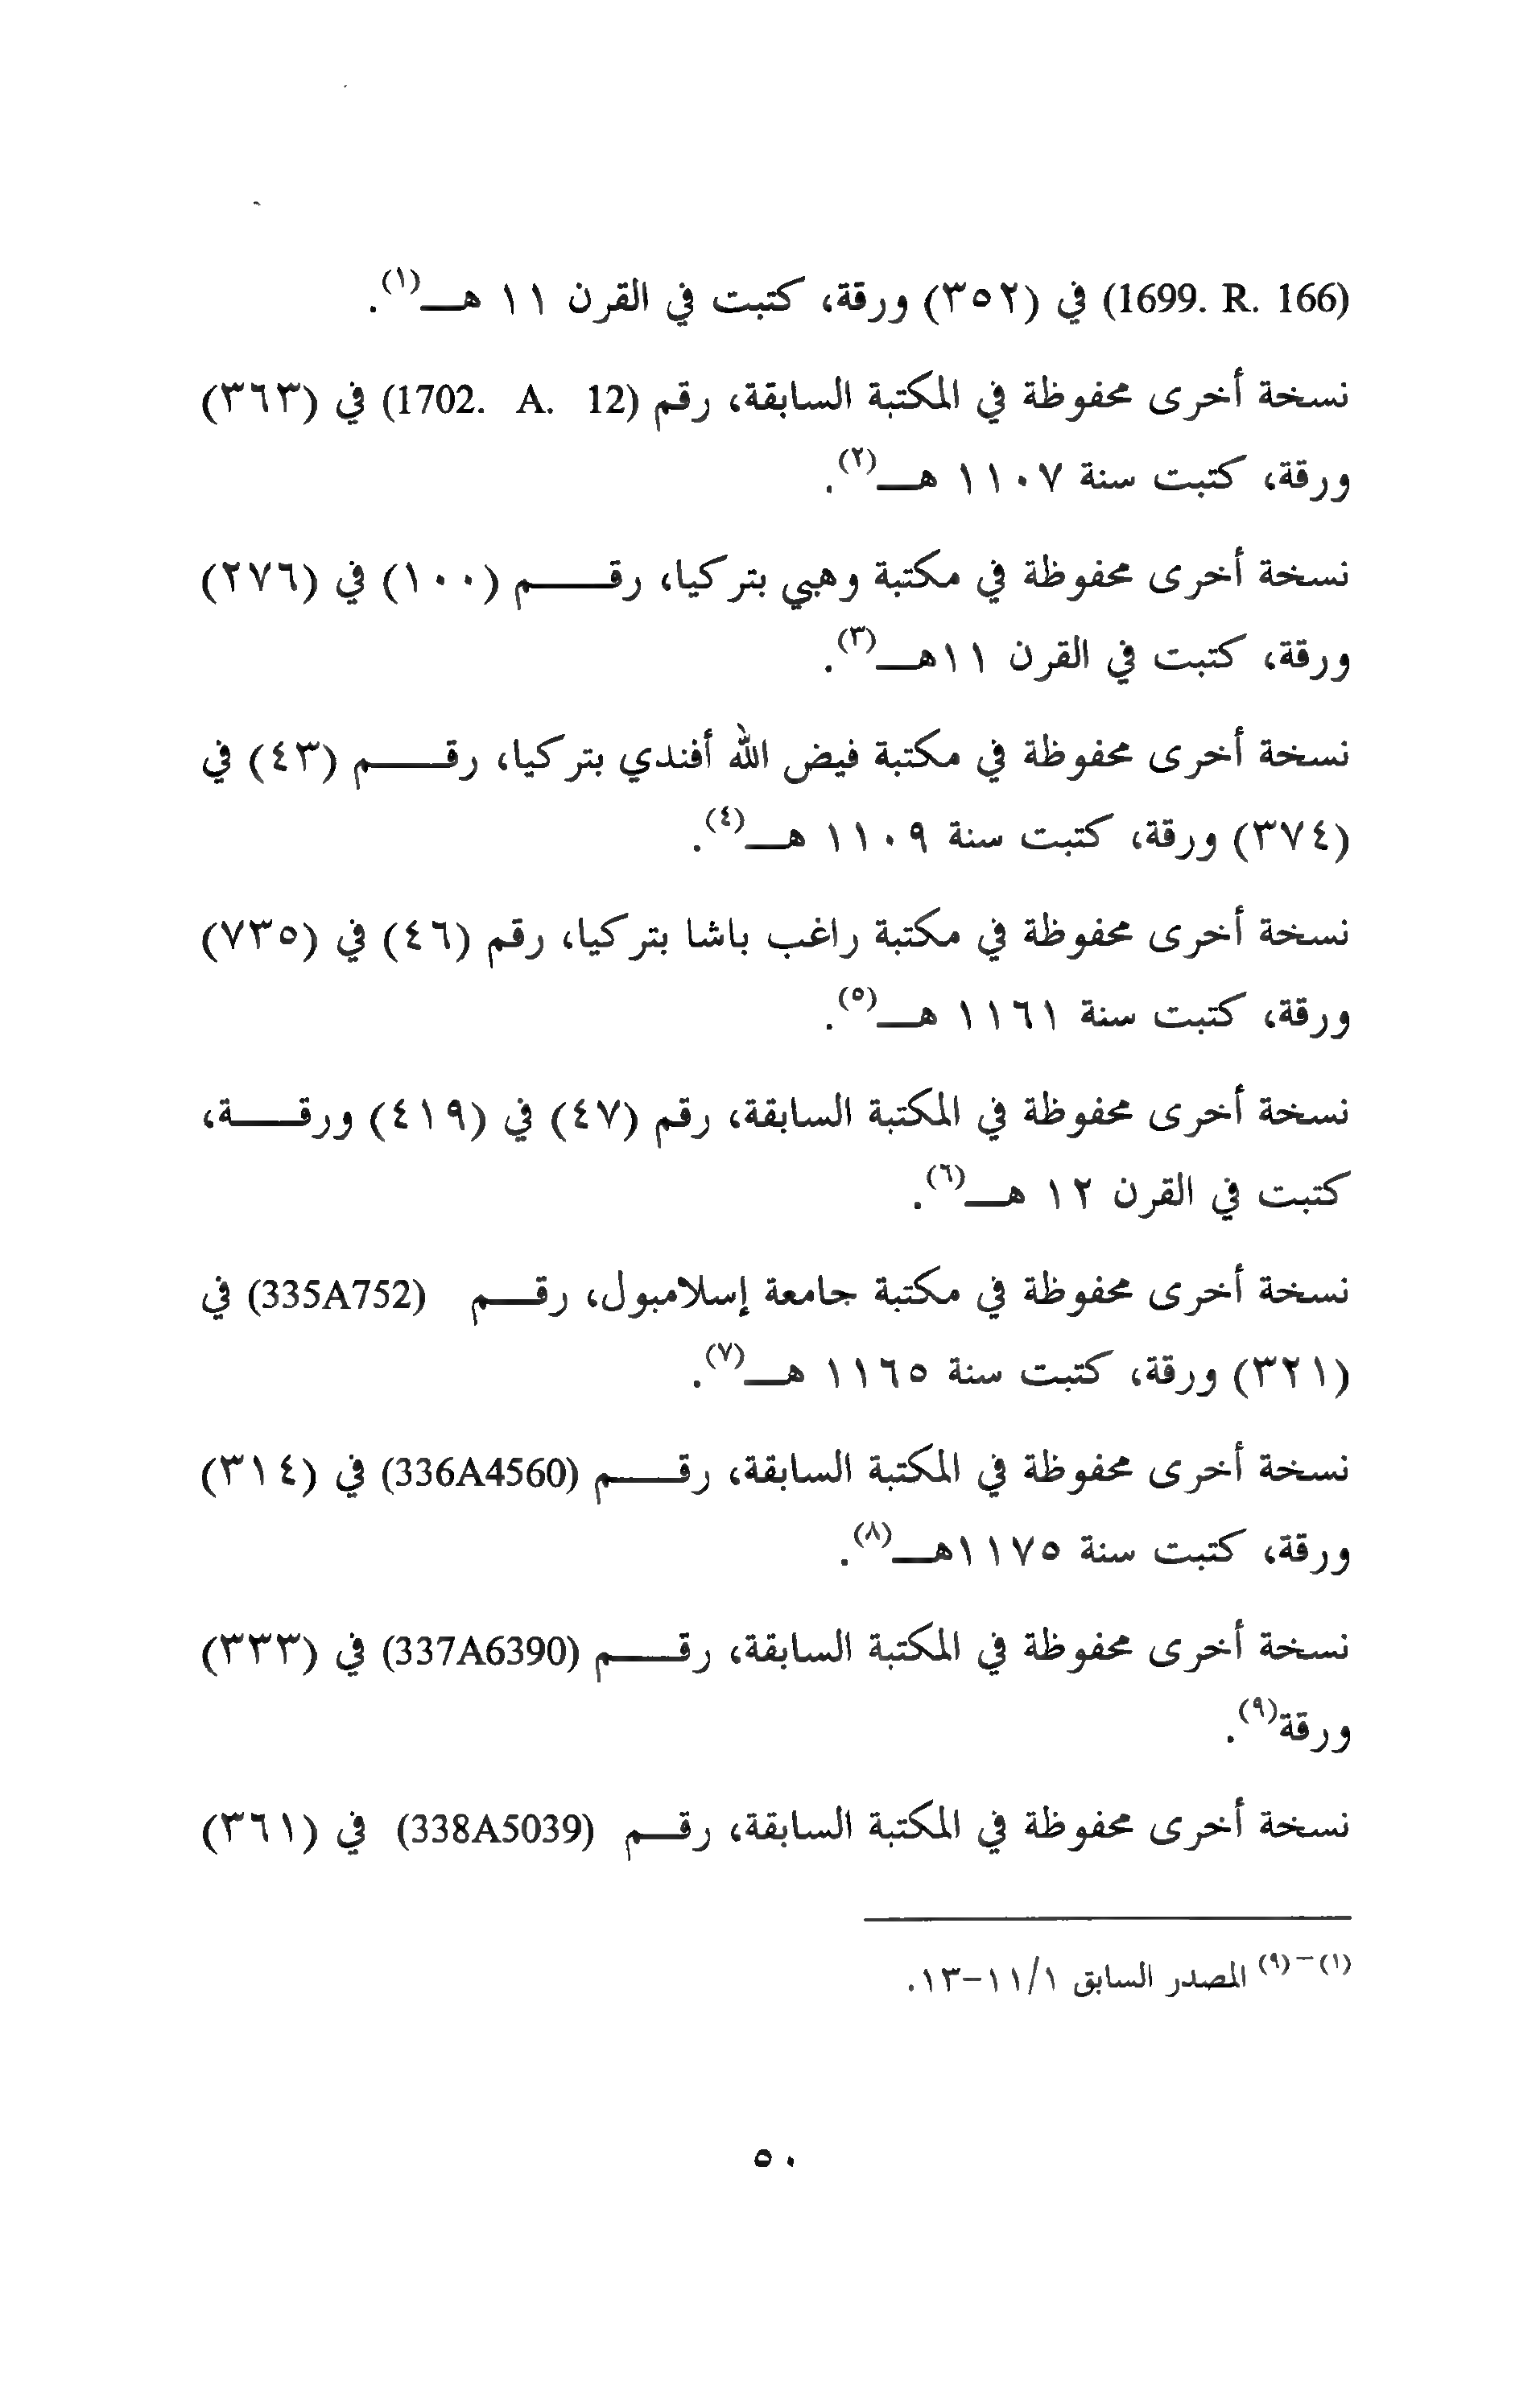 (1699. R. 166) في (٣٥٢) ورقة، كتبت في القرن ١١ هـ(١).
نسخة أخرى محفوظة في المكتبة السابقة، رقم (1702. A. 12) في (٣٦٣)
ورقة، كتبت سنة ١١٠٧ هـ(٢).
نسخة أخرى محفوظة في مكتبة وهبي بتركيا، رقم (١٠٠) في (٢٧٦)
ورقة، كتبت في القرن ١١هـ(٣).
نسخة أخرى محفوظة في مكتبة فيض الله أفندي بتركيا، رقم (٤٣) في
(٣٧٤) ورقة، كتبت سنة ١١٠٩ هـ(٤).
نسخة أخرى محفوظة في مكتبة راغب باشا بتركيا، رقم (٤٦) في (٧٣٥)
ورقة، كتبت سنة ١١٦١ هـ(٥).
نسخة أخرى محفوظة في المكتبة السابقة، رقم (٤٧) في (٤١٩) ورقة،
كتبت في القرن ١٢ هـ(٦).
نسخة أخرى محفوظة في مكتبة جامعة إسلامبول، رقم (335A752) في
(٣٢١) ورقة، كتبت سنة ١١٦٥ هـ(٧).
نسخة أخرى محفوظة في المكتبة السابقة، رقم (336A4560) في (٣١٤)
ورقة، كتبت سنة ١١٧٥هـ(٨).
نسخة أخرى محفوظة في المكتبة السابقة، رقم (337A6390) في (٣٣٣)
ورقة(٩).
نسخة أخرى محفوظة في المكتبة السابقة، رقم (338A5039) في (٣٦١)
(١)–(٩) المصدر السابق ١١/١–١٣.
٥٠